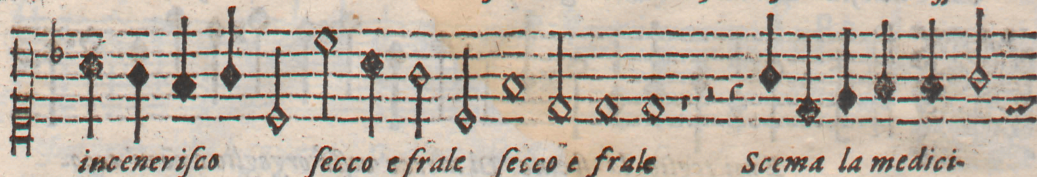 inceneriſco ſecco e frale ſecco e frale Scema la medici-